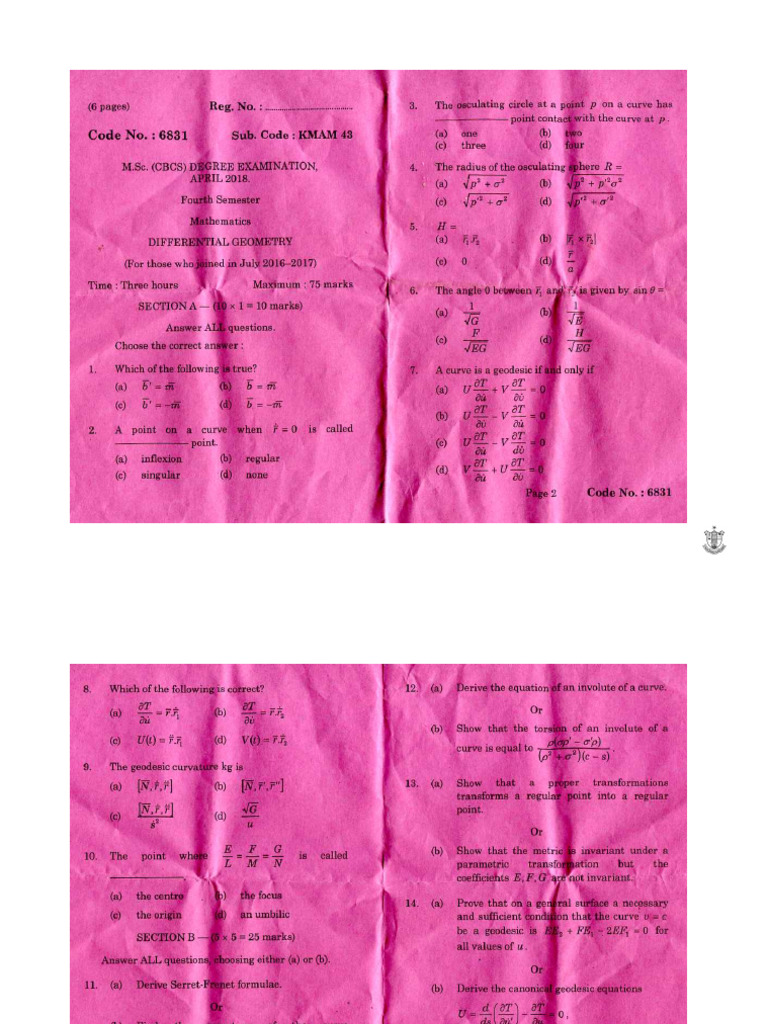 (6 pages) Reg. No. : ....................................
Code No. : 6831 Sub. Code : KMAM 43
M.Sc. (CBCS) DEGREE EXAMINATION,
APRIL 2018.
Fourth Semester
Mathematics
DIFFERENTIAL GEOMETRY
(For those who joined in July 2016–2017)
Time : Three hours Maximum : 75 marks
SECTION A — (10 × 1 = 10 marks)
Answer ALL questions.
Choose the correct answer :
1. Which of the following is true?
(a) b̄' = m̄ (b) b̄ = m̄
(c) b̄' = −m̄ (d) b̄ = −m̄
2. A point on a curve when r̈ = 0 is called
____________ point.
(a) inflexion (b) regular
(c) singular (d) none
3. The osculating circle at a point p on a curve has
____________ point contact with the curve at p.
(a) one (b) two
(c) three (d) four
4. The radius of the osculating sphere R =
(a) √(ρ² + σ²) (b) √(ρ² + ρ'²σ²)
(c) √(ρ'² + σ²) (d) √(ρ'² + σ'²)
5. H =
(a) r̄₁.r̄₂ (b) |r̄₁ × r̄₂|
(c) 0 (d) r̄/a
6. The angle θ between r̄₁ and r̄₂ is given by sin θ =
(a) 1/√G (b) 1/√E
(c) F/√EG (d) H/√EG
7. A curve is a geodesic if and only if
(a) U ∂T/∂u̇ + V ∂T/∂v̇ = 0
(b) U ∂T/∂v̇ − V ∂T/∂u̇ = 0
(c) U ∂T/∂u̇ − V ∂T/∂v̇ = 0
(d) V ∂T/∂u̇ + U ∂T/∂v̇ = 0
Page 2 Code No. : 6831
8. Which of the following is correct?
(a) ∂T/∂u̇ = r̄.ṙ₁ (b) ∂T/∂v̇ = r̄.ṙ₂
(c) U(t) = r̈.r̄₁ (d) V(t) = r̄.ṙ₂
9. The geodesic curvature kg is
(a) [N̄, ṙ, r̈] (b) [N̄, r̄', r̄'']
(c) [N̄, ṙ, r̈]/ṡ² (d) √G/u
10. The point where E/L = F/M = G/N is called
____________
(a) the centre (b) the focus
(c) the origin (d) an umbilic
SECTION B — (5 × 5 = 25 marks)
Answer ALL questions, choosing either (a) or (b).
11. (a) Derive Serret-Frenet formulae.
Or
12. (a) Derive the equation of an involute of a curve.
Or
(b) Show that the torsion of an involute of a
curve is equal to ρ(σρ' − σ'ρ)/((ρ² + σ²)(c − s)).
13. (a) Show that a proper transformations
transforms a regular point into a regular
point.
Or
(b) Show that the metric is invariant under a
parametric transformation but the
coefficients E, F, G are not invariant.
14. (a) Prove that on a general surface a necessary
and sufficient condition that the curve v = c
be a geodesic is EE₂ + FE₁ − 2EF₁ = 0 for
all values of u.
Or
(b) Derive the canonical geodesic equations
U = d/ds (∂T/∂u') − ∂T/∂u = 0,